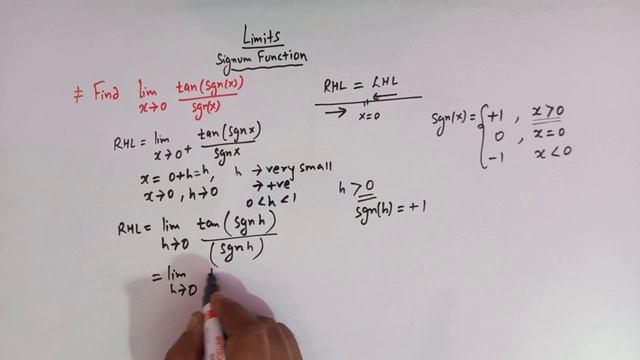 Limits
Signum Function
≠ Find lim x→0 tan(sgn(x))/sgn(x)
RHL = LHL
x=0
sgn(x) = { +1 , x>0
0 , x=0
-1 x<0
RHL = lim x→0+ tan(sgn x)/sgn x
x = 0+h = h, h →very small
x→0, h→0 →+ve
0<h<1
h>0
sgn(h) = +1
RHL = lim h→0 tan(sgn h)/(sgn h)
= lim h→0